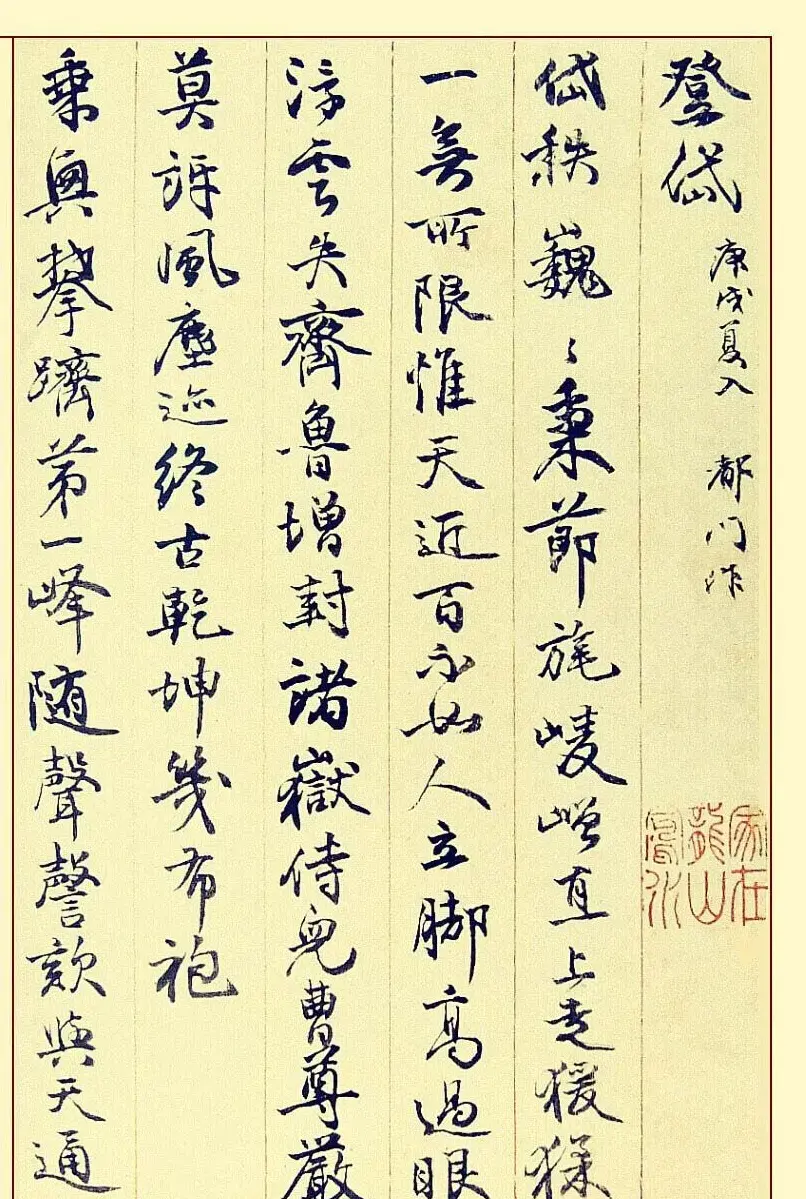 登岱 庚戌夏入 都門作
岱秩巍〻秉節旄崚嶒直上走猨猱
一無所限惟天近百不如人立脚高過眼
浮雲失齊魯增封諸嶽侍兒曹尊嚴
莫訝風塵迹終古乾坤幾布袍
乘興攀躋第一峰随聲謦欬與天通
家在龍山